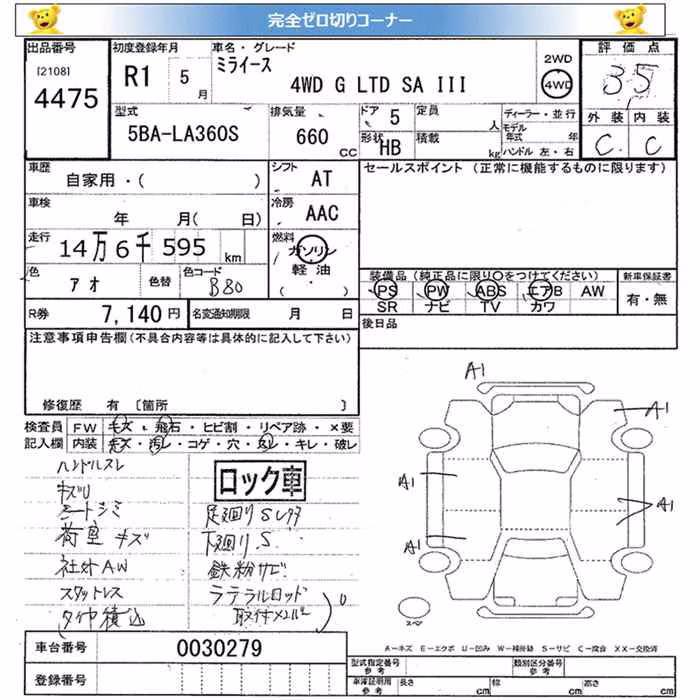 完全ゼロ切りコーナー
出品番号
[2108]
4475
初度登録年月
R1 5月
車名・グレード
ミライース
4WD G LTD SA III
2WD
4WD
評価点
3.5
外装 内装
C C
型式
5BA-LA360S
排気量
660 CC
ドア 5
形状 HB
定員 人
積載 kg
ディーラー・並行
モデル年式 年
ハンドル 左・右
車歴
自家用・( )
シフト
AT
セールスポイント (正常に機能するものに限ります)
車検
年 月( 日)
冷房
AAC
走行
14万6千595 km
燃料
ガソリン
軽油
( ・ )
色
アオ
色替
色コード
B80
装備品(純正品に限り○をつけてください)
PS PW ABS エアB AW
SR ナビ TV カワ
新車保証書
有・無
R券
7,140円
名変通知期限 月 日
後日品
注意事項申告欄(不具合内容等は具体的に記入して下さい)
修復歴 有 [箇所 ]
検査員記入欄
FW キズ・飛石・ヒビ割・リペア跡・×要
内装 キズ・汚レ・コゲ・穴・スレ・キレ・破レ
ハンドルスレ
キズU
シートシミ
荷室キズ
社外AW
スタットレス
タイヤ積込
ロック車
足廻りSレタ
下廻りS
鉄粉サビ
ラテラルロッド
取付メンバー
A1
A1
A1
A1
A1
スペア
A-キズ E-エクボ U-凹み W-補修跡 S-サビ C-腐食 XX-交換済
車台番号
0030279
登録番号
型式指定番号 参考
類別区分番号 参考
車庫証明用 参考
長さ cm
幅 cm
高さ cm